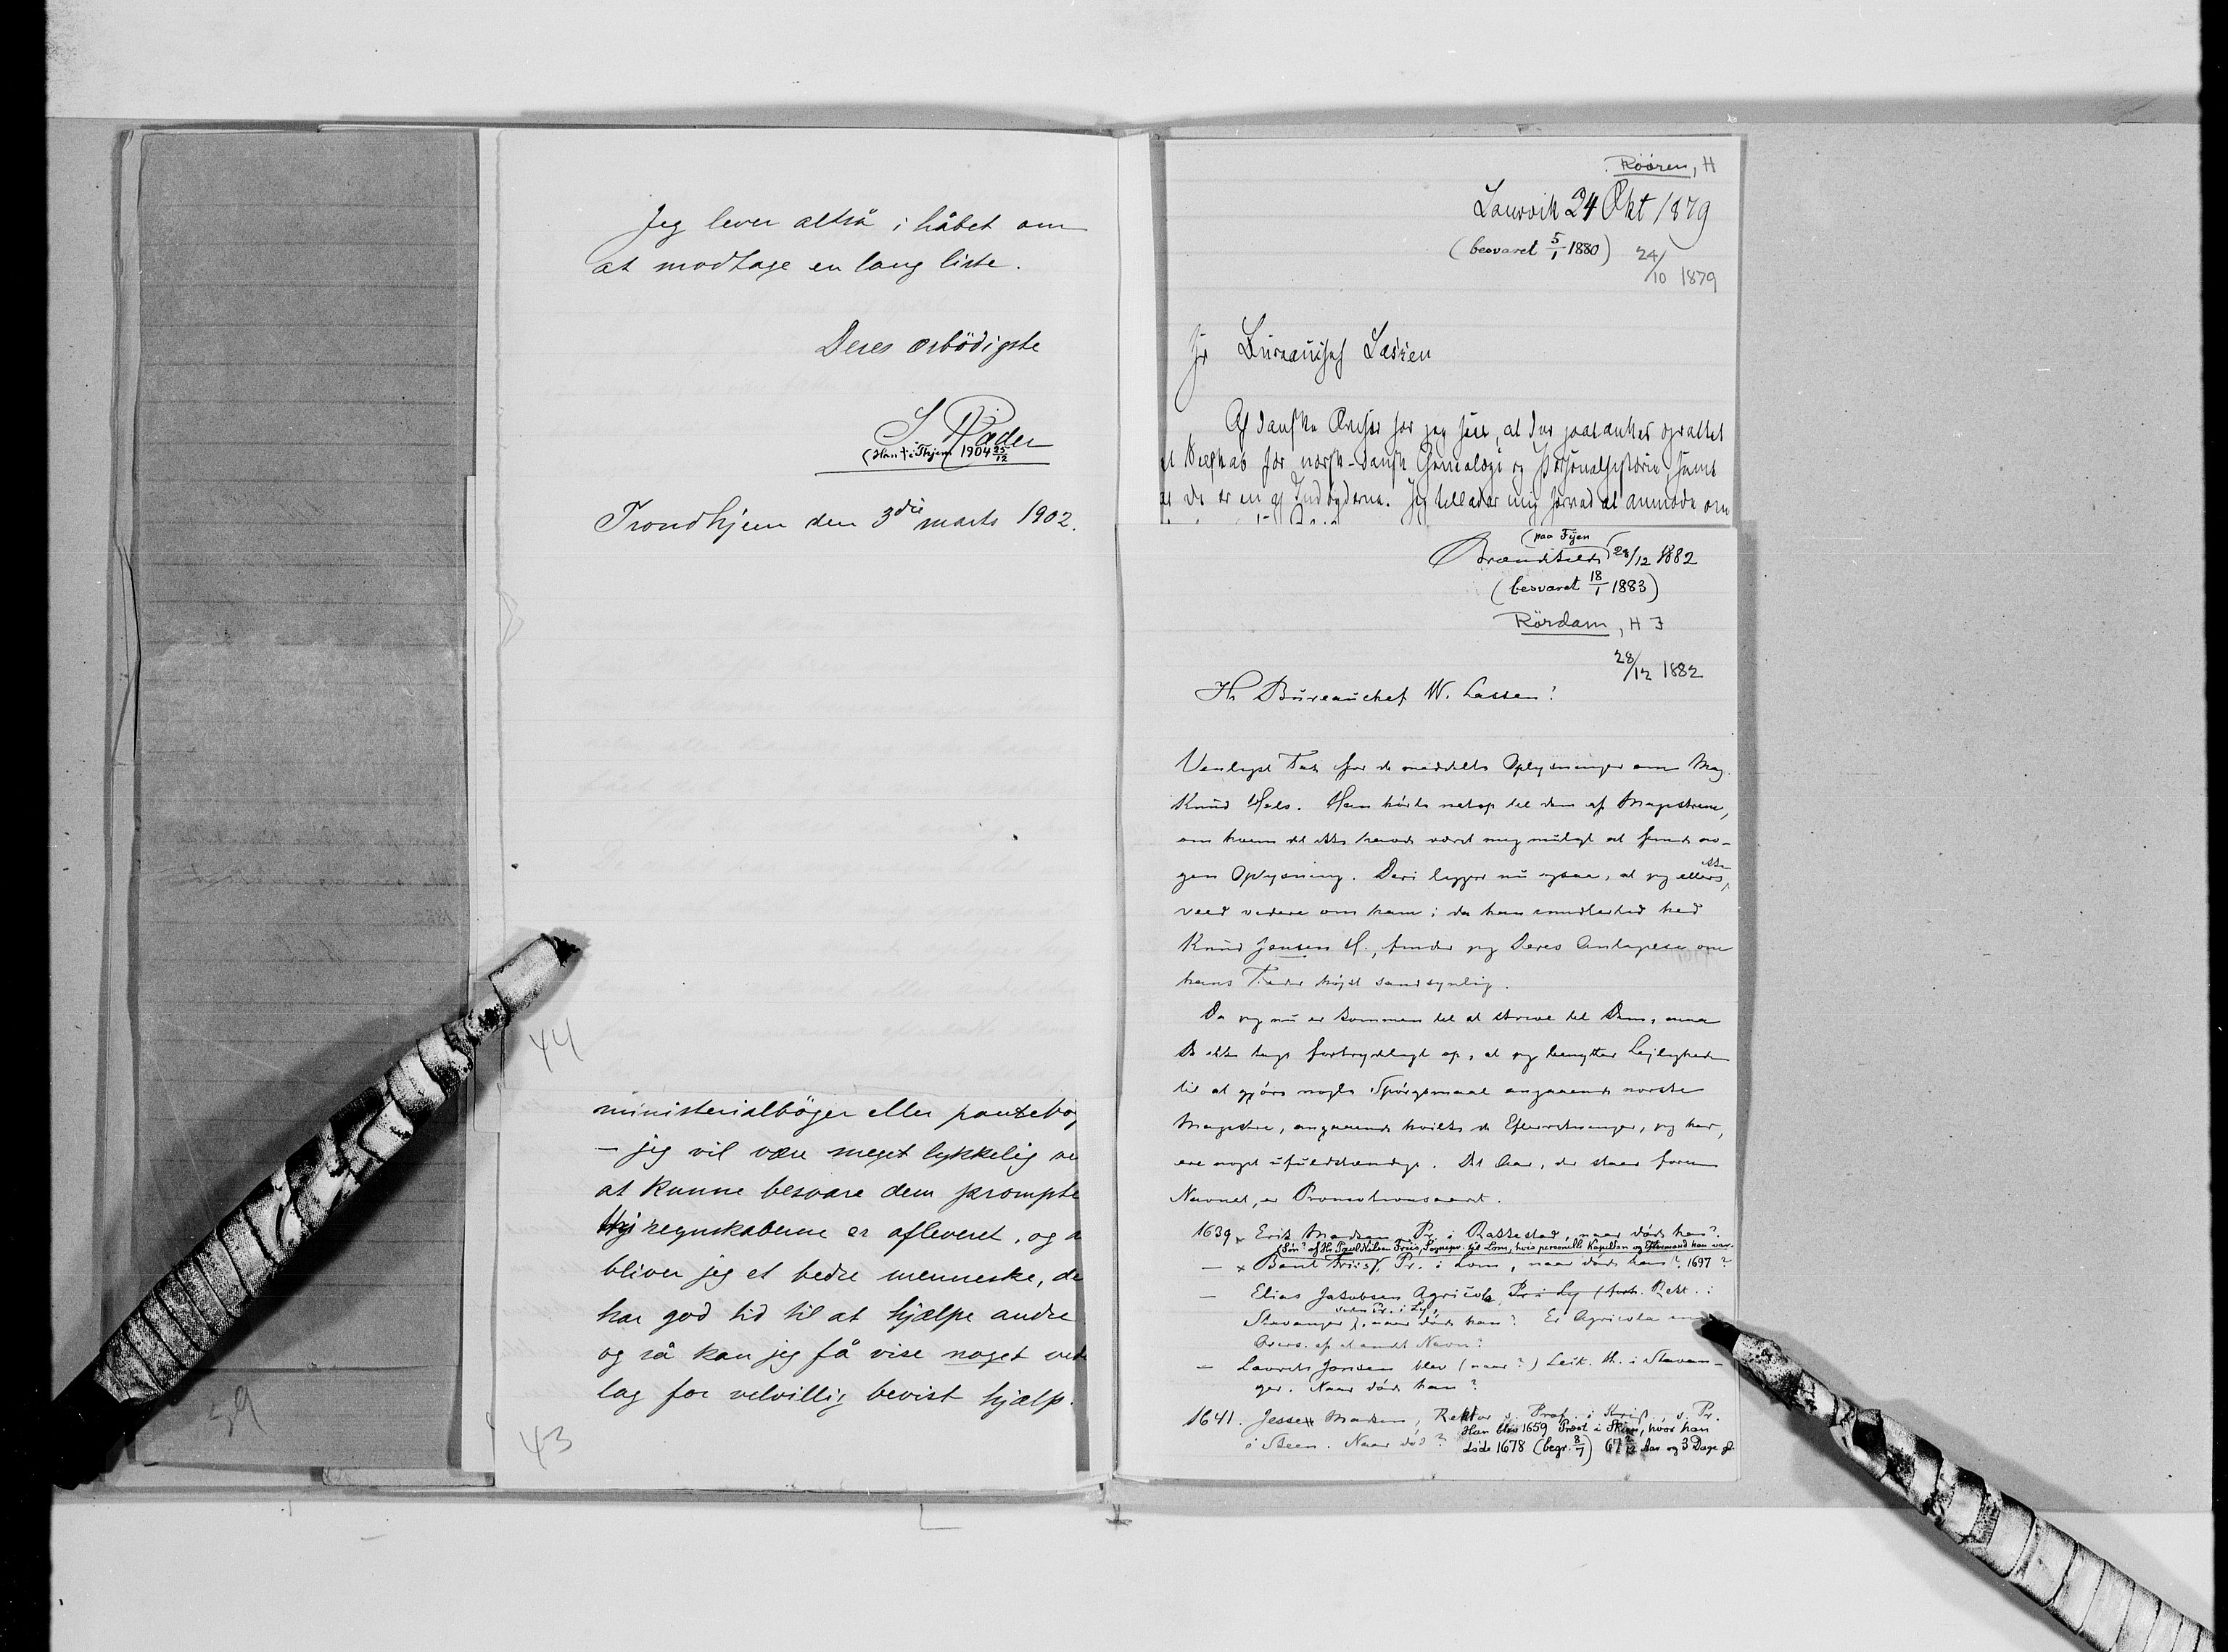 Jeg lever altså i håbet om
at modtage en lang liste.
Deres ærbödigste
S. Ræder
(Han † i Thjem 1904 25/12
Trondhjem den 3die marts 1902.
44
ministerialböger eller pantebog
– jeg vil være meget lykkelig ve
at kunne besvare dem prompte
regnskaberne er afleveret, og n
bliver jeg et bedre menneske, de
har god tid til at hjælpe andre
og så kan jeg få vise noget veder
lag for velvillig bevist hjælp.
43
39
Röören, H
Laurvik 24 Okt 1879
(besvaret 5/1 1880)
24/10 1879
Hr Bureauchef Lassen
Af danske Aviser har jeg seet, at der paatænkes oprettet
et Selskab for norsk-dansk Genealogi og Personalhistorie, samt
at De er en af Indbyderne. Jeg tillader mig herved at anmode om
(paa Fyen)
Brændekilde 28/12 1882
(besvaret 18/1 1883)
Rördam, H F
28/12 1882
Hr Bureauchef W. Lassen!
Venligst Tak for de meddelte Oplysninger om Mag.
Knud Hals. Han hörte netop til dem af Magistrene,
om hvem det ikke havde været mig muligt at finde no-
gen Oplysning. Deri ligger nu ogsaa, at jeg ellers ikke
veed videre om ham; da han imidlertid hed
Knud Jensen H., finder jeg Deres Antagelse om
hans Fader höjst sandsynlig.
Da jeg nu er kommen til at skrive til Dem, maa
De ikke tage fortrydeligt op, at jeg benytter Lejligheden
til at gjöre nogle Spörgsmaal angaaende norske
Magistre, angaaende hvilke de Efterretninger, jeg har,
ere noget ufuldstændige. Det Aar, der staar foran
Navnet, er Promotionsaaret.
1639 × Erik Madsen Pr. i Rakkestad, naar döde han?
(Sön? af Hr. Poul Nilsen Friis, Sognepr. til Lom, hvis personelle Kapellan og Eftermand han var.
— × Bent Friis, Pr. i Lom, naar döde han? 1697?
— Elias Jakobsen Agricola, Pr. i Ly (forh. Rekt. i
siden Pr. i Ly,
Stavanger), naar döde han? Er Agricola en
Overs. af et andet Navn?
— Laurits Jensen blev (naar?) Lekt. th. i Stavan-
ger. Naar döde han?
1641. Jesse Madsen, Rektor s. Prof. i Krist. s. Pr.
i Skeen. Naar död? Han blev 1659 Provst i Skien, hvor han
döde 1678 (begr. 8/7) 67 Aar og 3 Dage gl.